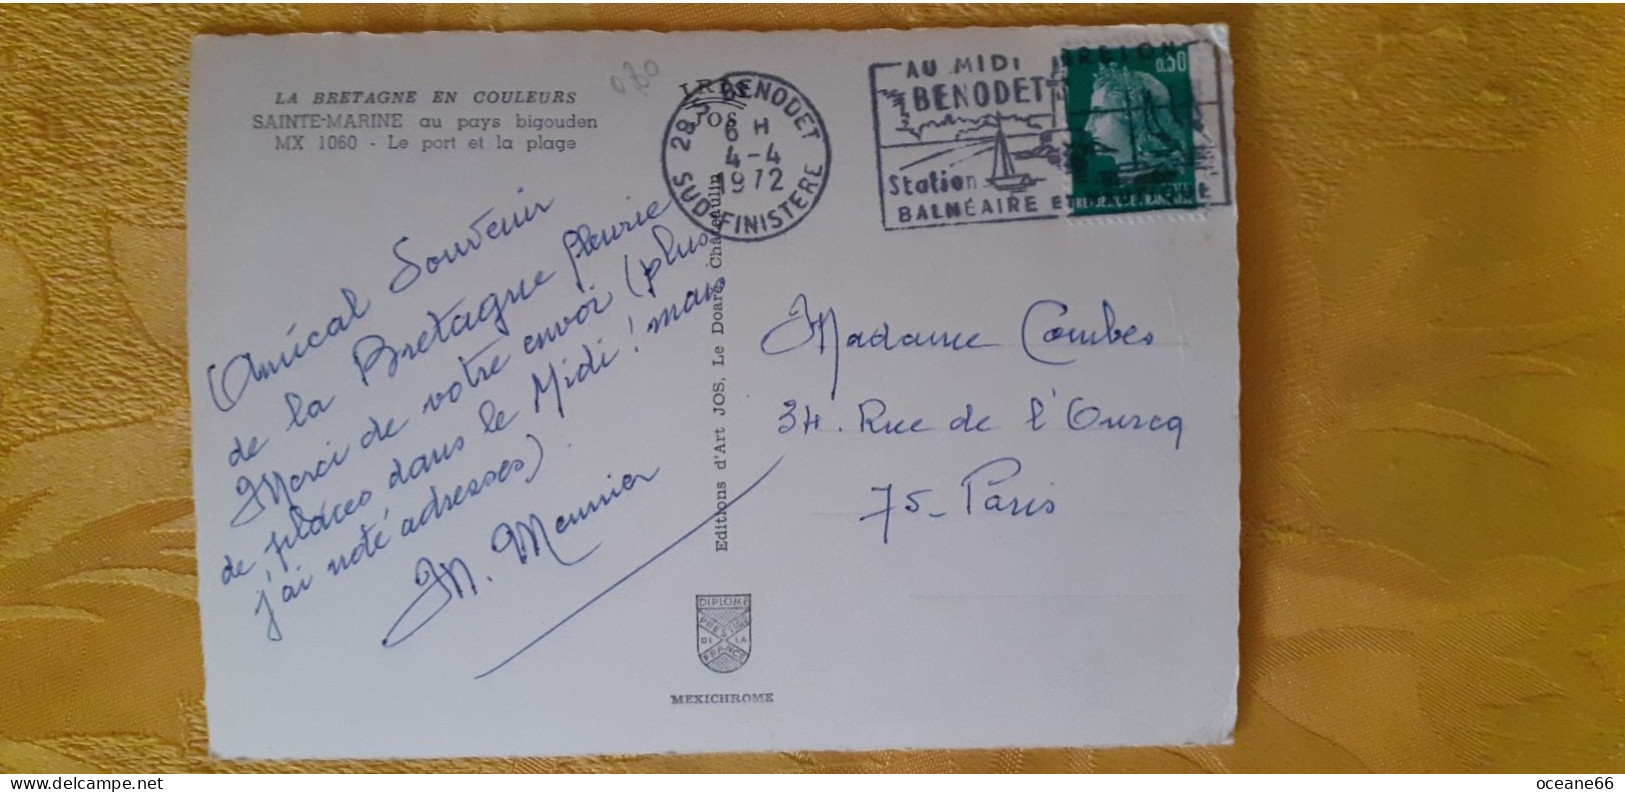 LA BRETAGNE EN COULEURS
SAINTE-MARINE au pays bigouden
MX 1060 - Le port et la plage
0,80
JOS
29 BENODET
6 H
4-4
1972
SUD FINISTERE
AU MIDI BRETON
BENODET
Station
BALNÉAIRE ET
0,30
REPUBLIQUE FRANÇAISE
Amical Souvenir
de la Bretagne fleurie
Merci de votre envoi (plus
de places dans le Midi ! mais
j'ai noté adresses).
M. Meunier
Editions d'Art JOS, Le Doaré, Châteaulin
Madame Combes
34. Rue de l'Ourcq
75- Paris
DIPLOME
PRESTIGE
DE LA
FRANCE
MEXICHROME
oceane66